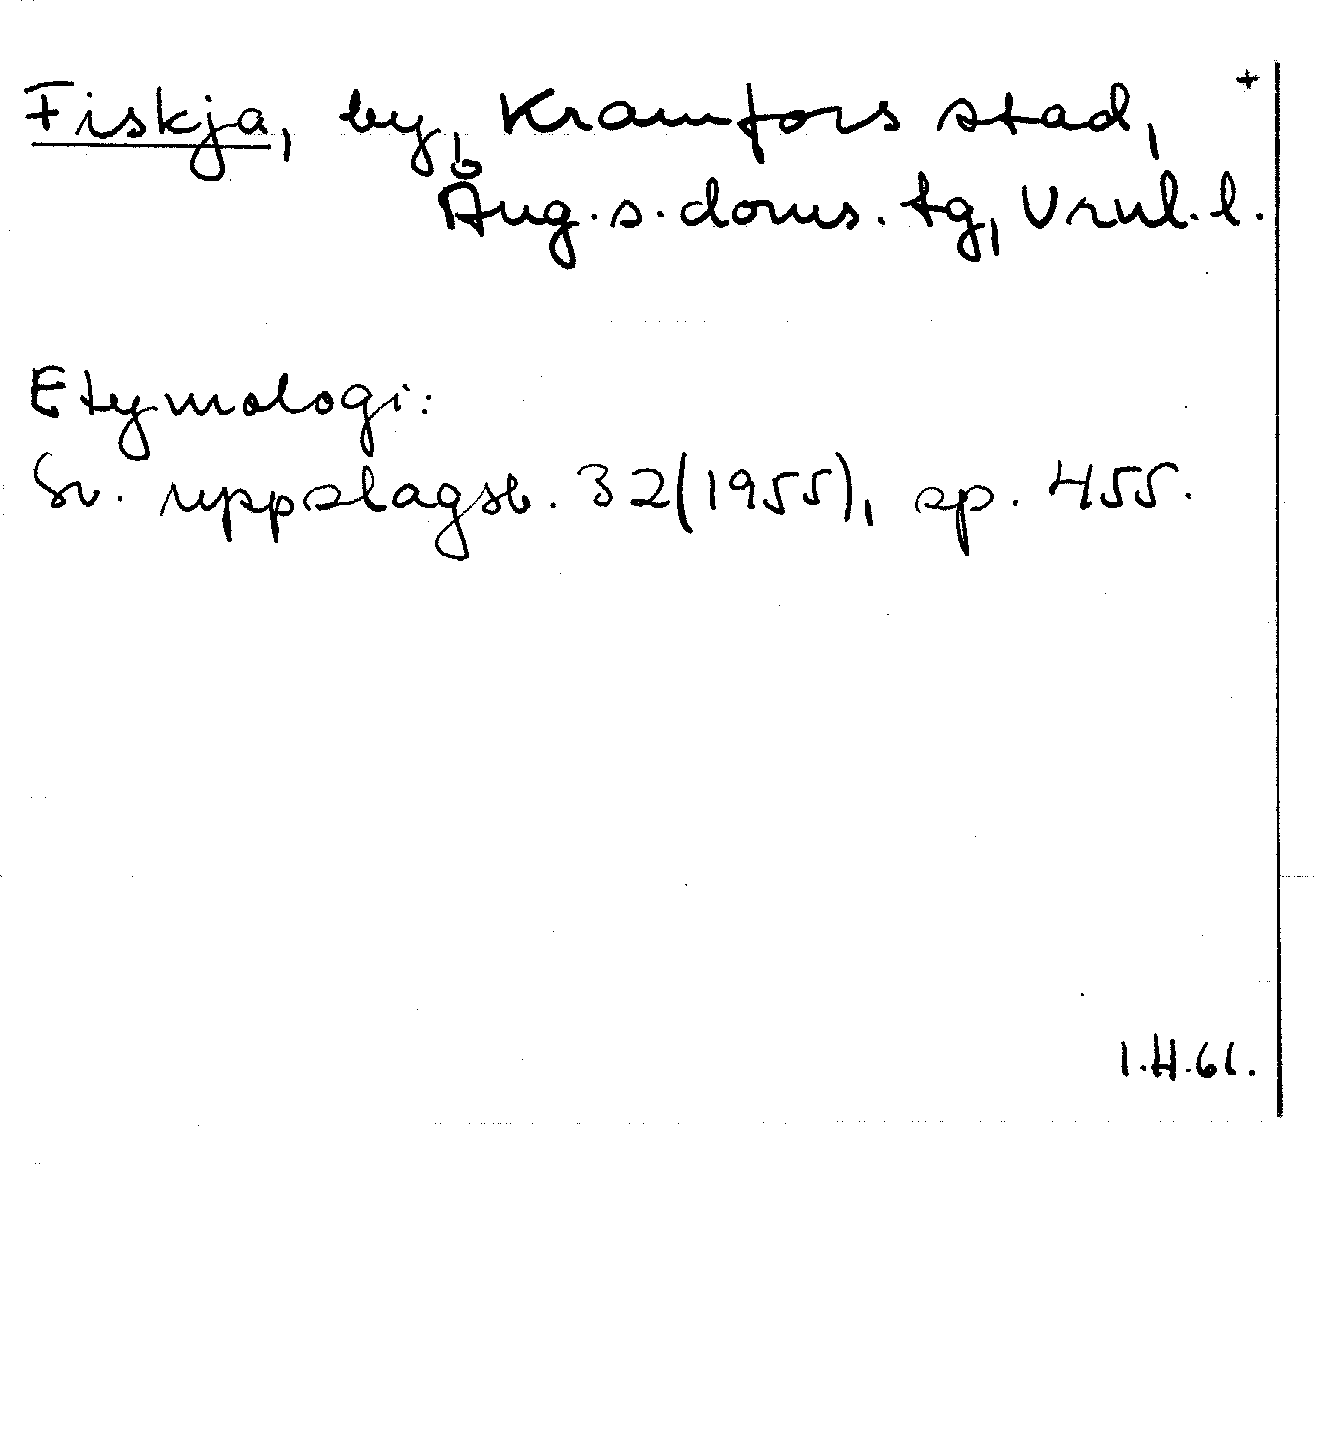 Fiskja, by, Kramfors stad, +
Ång. s. doms. tg, Vrnl. l.
Etymologi:
Sv. uppslagsb. 32(1955), sp. 455.
1.4.61.